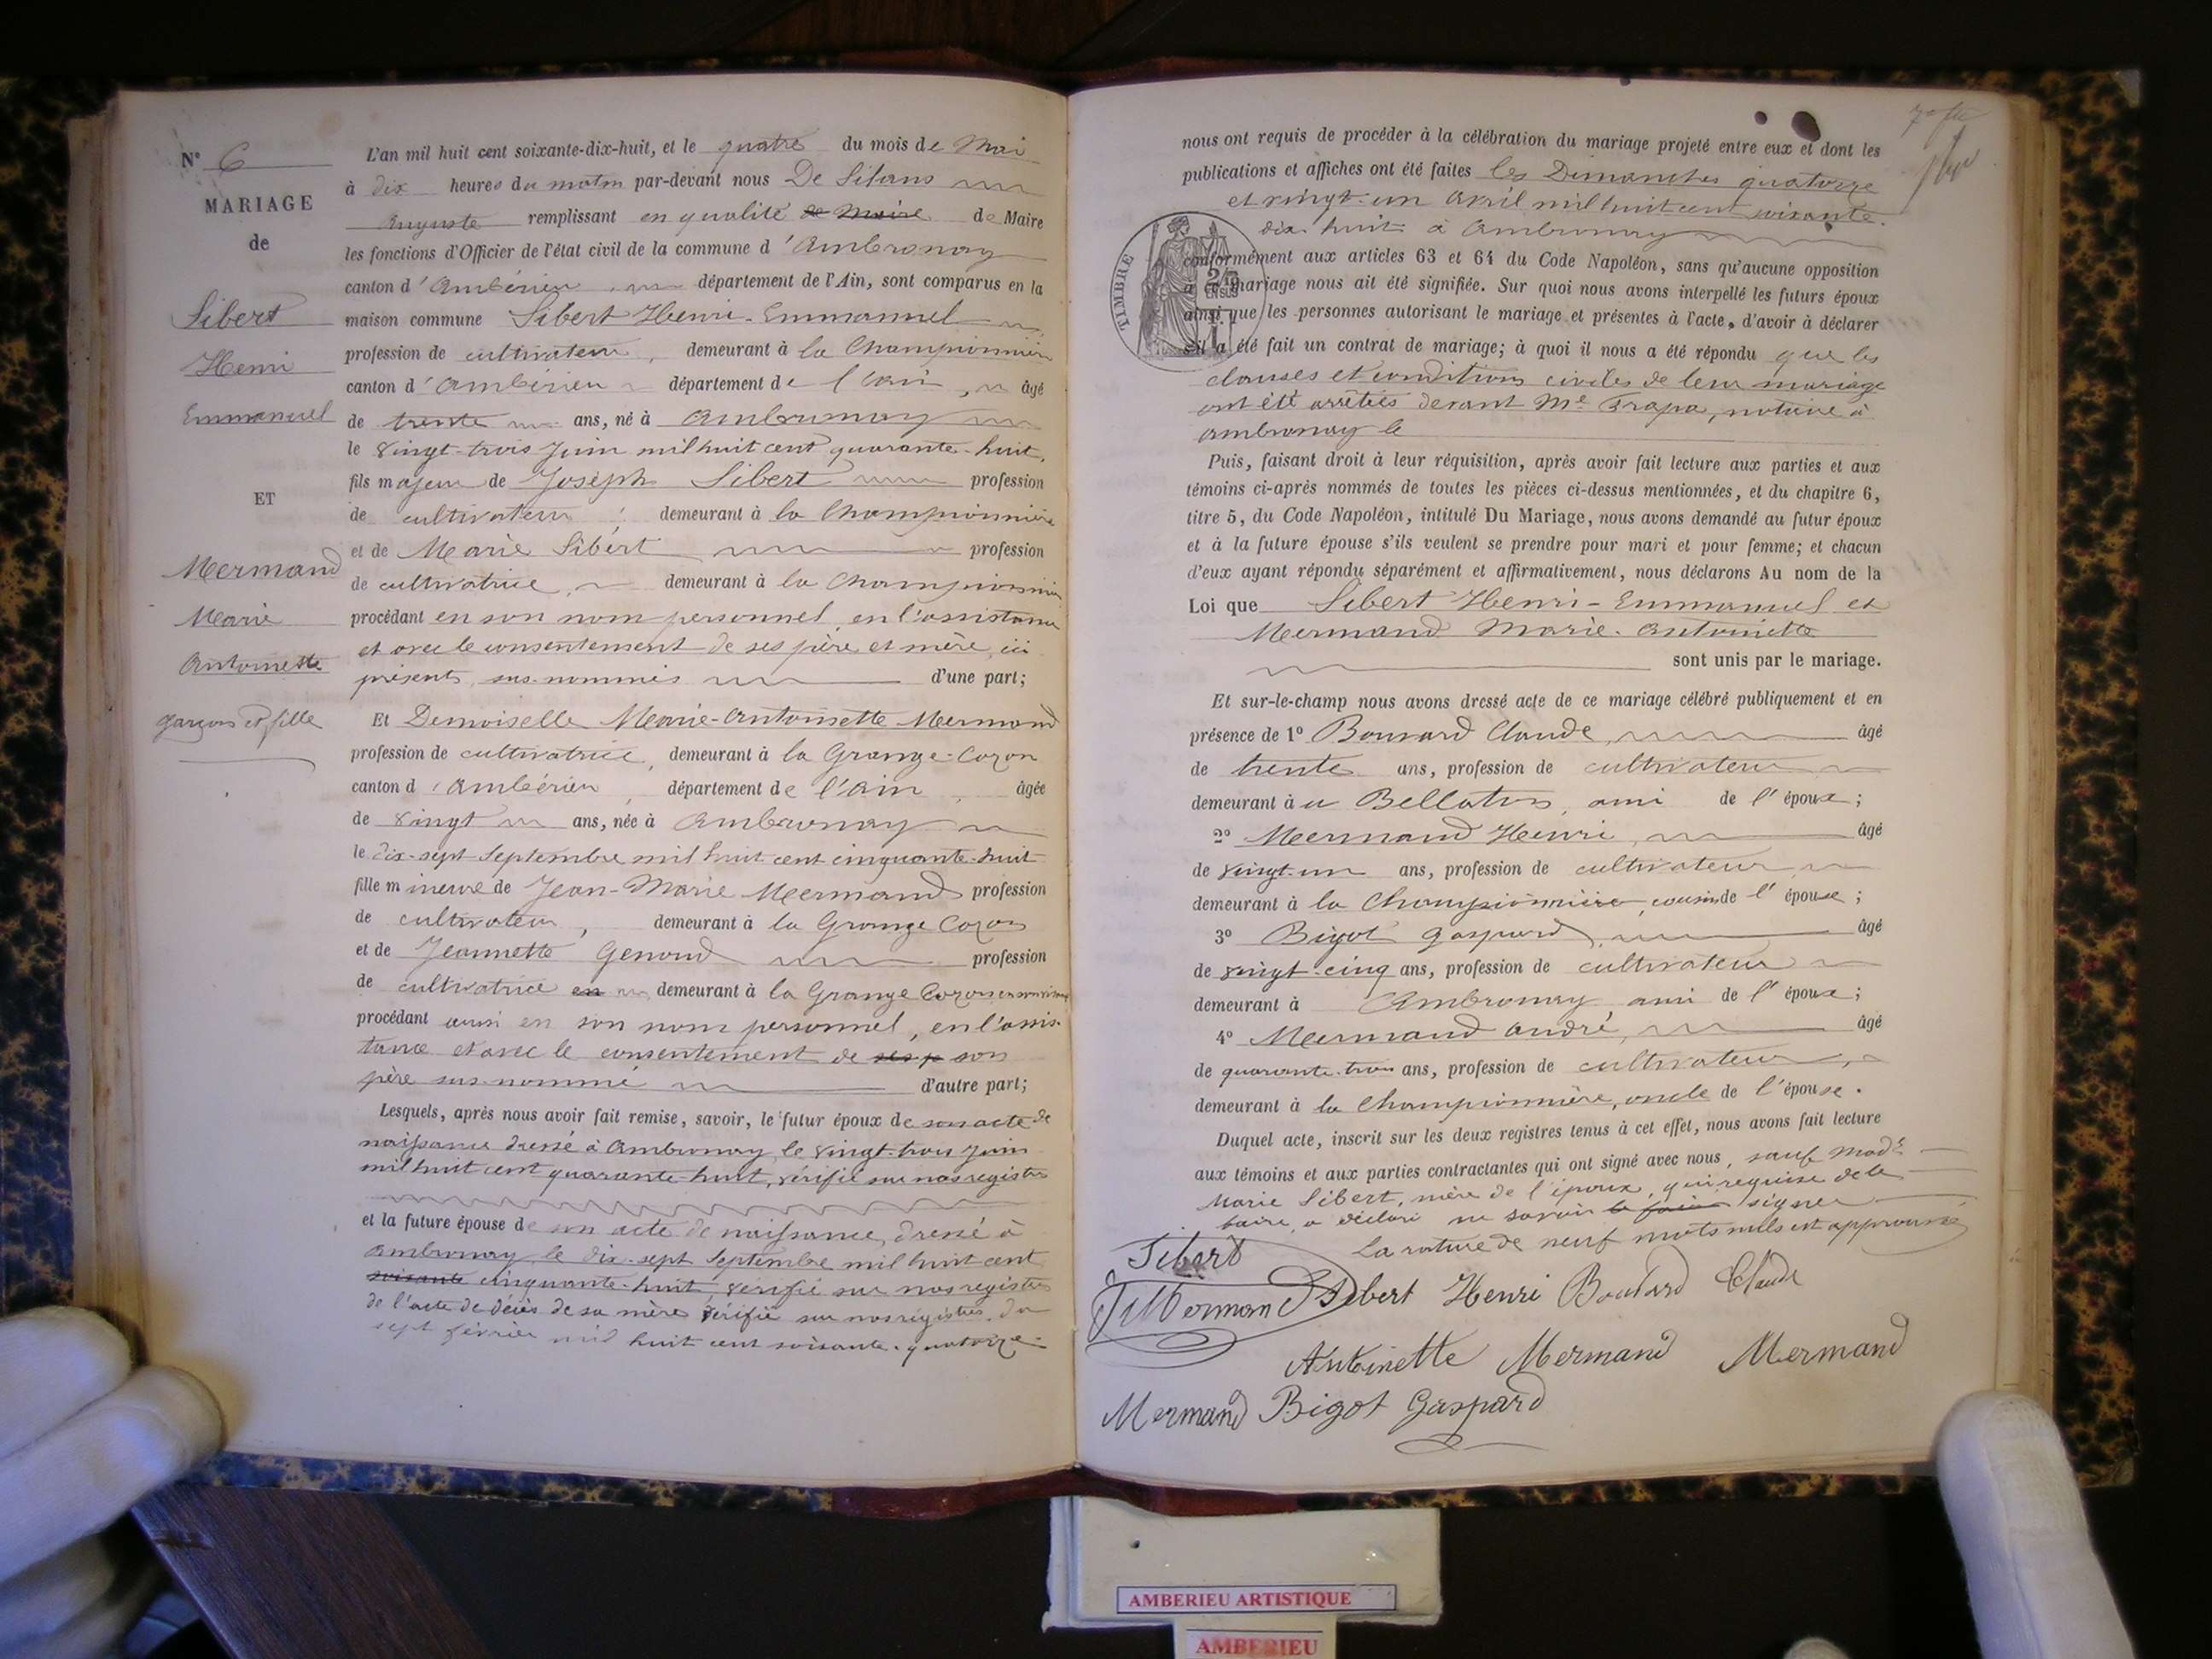 N° 6
MARIAGE
de
Sibert
Henri
Emmanuel
ET
Mermand
Marie
Antoinette
garçon et fille
L'an mil huit cent soixante-dix-huit, et le quatre du mois de Mai
à dix heures du matin par-devant nous De Silans
Auguste remplissant en qualité de Maire de Maire
les fonctions d'Officier de l'état civil de la commune d'Ambronay
canton d'Ambérieu département de l'Ain, sont comparus en la
maison commune Sibert Henri-Emmanuel
profession de cultivateur, demeurant à la Championnière
canton d'Ambérieu département de l'Ain, âgé
de trente ans, né à Ambronay
le vingt-trois Juin mil huit cent quarante-huit,
fils majeur de Joseph Sibert profession
de cultivateur, demeurant à la Championnière
et de Marie Sibert profession
de cultivatrice, demeurant à la Championnière
procédant en son nom personnel, en l'assistance
et avec le consentement de ses père et mère, ici
présents, sus-nommés d'une part;
Et Demoiselle Marie-Antoinette Mermand
profession de cultivatrice, demeurant à la Grange-Cozon
canton d'Ambérieu, département de l'Ain, âgée
de vingt ans, née à Ambronay
le dix-sept Septembre mil huit cent cinquante-huit
fille mineure de Jean-Marie Mermand profession
de cultivateur, demeurant à la Grange Cozon
et de Jeannette Genoud profession
de cultivatrice en demeurant à la Grange Cozon en son vivant
procédant aussi en son nom personnel, en l'assis-
tance et avec le consentement de ses p son
père sus-nommé d'autre part;
Lesquels, après nous avoir fait remise, savoir, le futur époux de son acte de
naissance dressé à Ambronay, le vingt-trois Juin
mil huit cent quarante-huit, vérifié sur nos registres
et la future épouse de son acte de naissance, dressé à
Ambronay, le dix-sept Septembre mil huit cent
soixante cinquante-huit, vérifié sur nos registres
de l'acte de décès de sa mère vérifié sur nos registres, du
sept février mil huit cent soixante-quatorze-
nous ont requis de procéder à la célébration du mariage projeté entre eux et dont les
publications et affiches ont été faites les Dimanches quatorze
et vingt-un Avril mil huit cent soixante-
dix-huit à Ambronay
TIMBRE
2/10
EN SUS
conformément aux articles 63 et 64 du Code Napoléon, sans qu'aucune opposition
à ce mariage nous ait été signifiée. Sur quoi nous avons interpellé les futurs époux
ainsi que les personnes autorisant le mariage et présentes à l'acte, d'avoir à déclarer
s'il a été fait un contrat de mariage; à quoi il nous a été répondu que les
clauses et conditions civiles de leur mariage
ont été arrêtées devant Me Frapa, notaire à
Ambronay le
Puis, faisant droit à leur réquisition, après avoir fait lecture aux parties et aux
témoins ci-après nommés de toutes les pièces ci-dessus mentionnées, et du chapitre 6,
titre 5, du Code Napoléon, intitulé Du Mariage, nous avons demandé au futur époux
et à la future épouse s'ils veulent se prendre pour mari et pour femme; et chacun
d'eux ayant répondu séparément et affirmativement, nous déclarons Au nom de la
Loi que Sibert Henri-Emmanuel et
Mermand Marie-Antoinette
sont unis par le mariage.
Et sur-le-champ nous avons dressé acte de ce mariage célébré publiquement et en
présence de 1° Bouvard Claude, âgé
de trente ans, profession de cultivateur
demeurant à u Bellaton, ami de l'époux;
2° Mermand Henri, âgé
de vingt-un ans, profession de cultivateur
demeurant à la Championnière, cousin de l'épouse;
3° Bigot Gaspard, âgé
de vingt-cinq ans, profession de cultivateur
demeurant à Ambronay, ami de l'époux;
4° Mermand André, âgé
de quarante-trois ans, profession de cultivateur,
demeurant à la Championnière, oncle de l'épouse.
Duquel acte, inscrit sur les deux registres tenus à cet effet, nous avons fait lecture
aux témoins et aux parties contractantes qui ont signé avec nous, sauf Made
Marie Sibert, mère de l'époux, qui requise de le
faire, a déclaré ne savoir le faire signer
La rature de neuf mots nuls est approuvée
Sibert
JMMermand Sibert Henri Bouvard Claude
Antoinette Mermand Mermand
Mermand Bigot Gaspard
AMBERIEU ARTISTIQUE
AMBERIEU